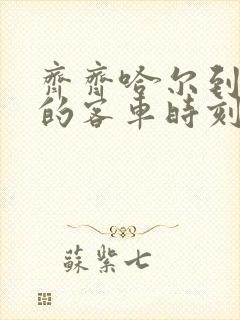 齊齊哈尔到
的客車時刻
蘇紫七